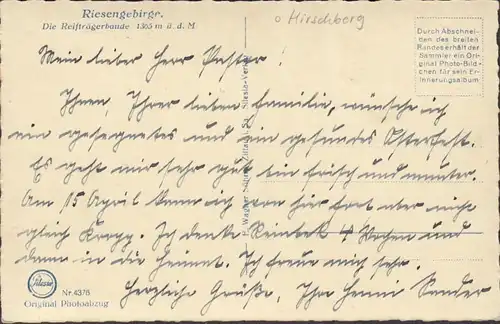 Riesengebirge.
Die Reifträgerbaude 1365 m ü. d. M
o Hirschberg
Durch Abschnei-
ten des breiten
Randes erhält der
Sammler ein Ori-
ginal Photo-Bild-
chen für sein Er-
innerungsalbum
Mein lieber Herr Pastor!
Ihnen, Ihrer lieben Familie, wünsche ich
ein gesegnetes und ein gesundes Osterfest.
Es geht mir sehr gut bin frisch und munter.
Am 15 April kann ich von hier fort aber nicht
gleich Ich denke Reinbek 4 Wochen und
dann in die Heimat. Ich freue mich sehr.
Herzliche Grüße, Ihre Henni Sander
Silesia
Nr. 4378
Original Photoabzug
Zittau i. Sa. Silesia-Verlag